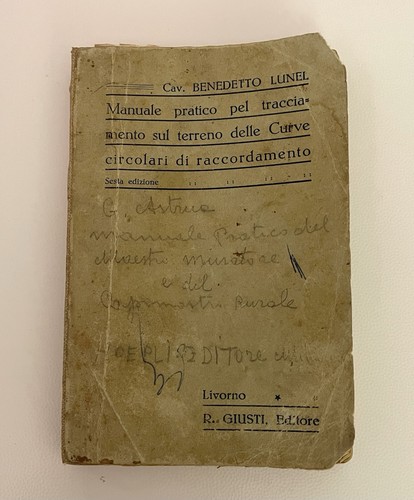 Cav. BENEDETTO LUNEL
Manuale pratico pel traccia-
mento sul terreno delle Curve
circolari di raccordamento
Sesta edizione
G. Astrua
manuale Pratico del
Maestro muratore
e del
Capomastro rurale
EDITORE
Livorno
R. GIUSTI, Editore